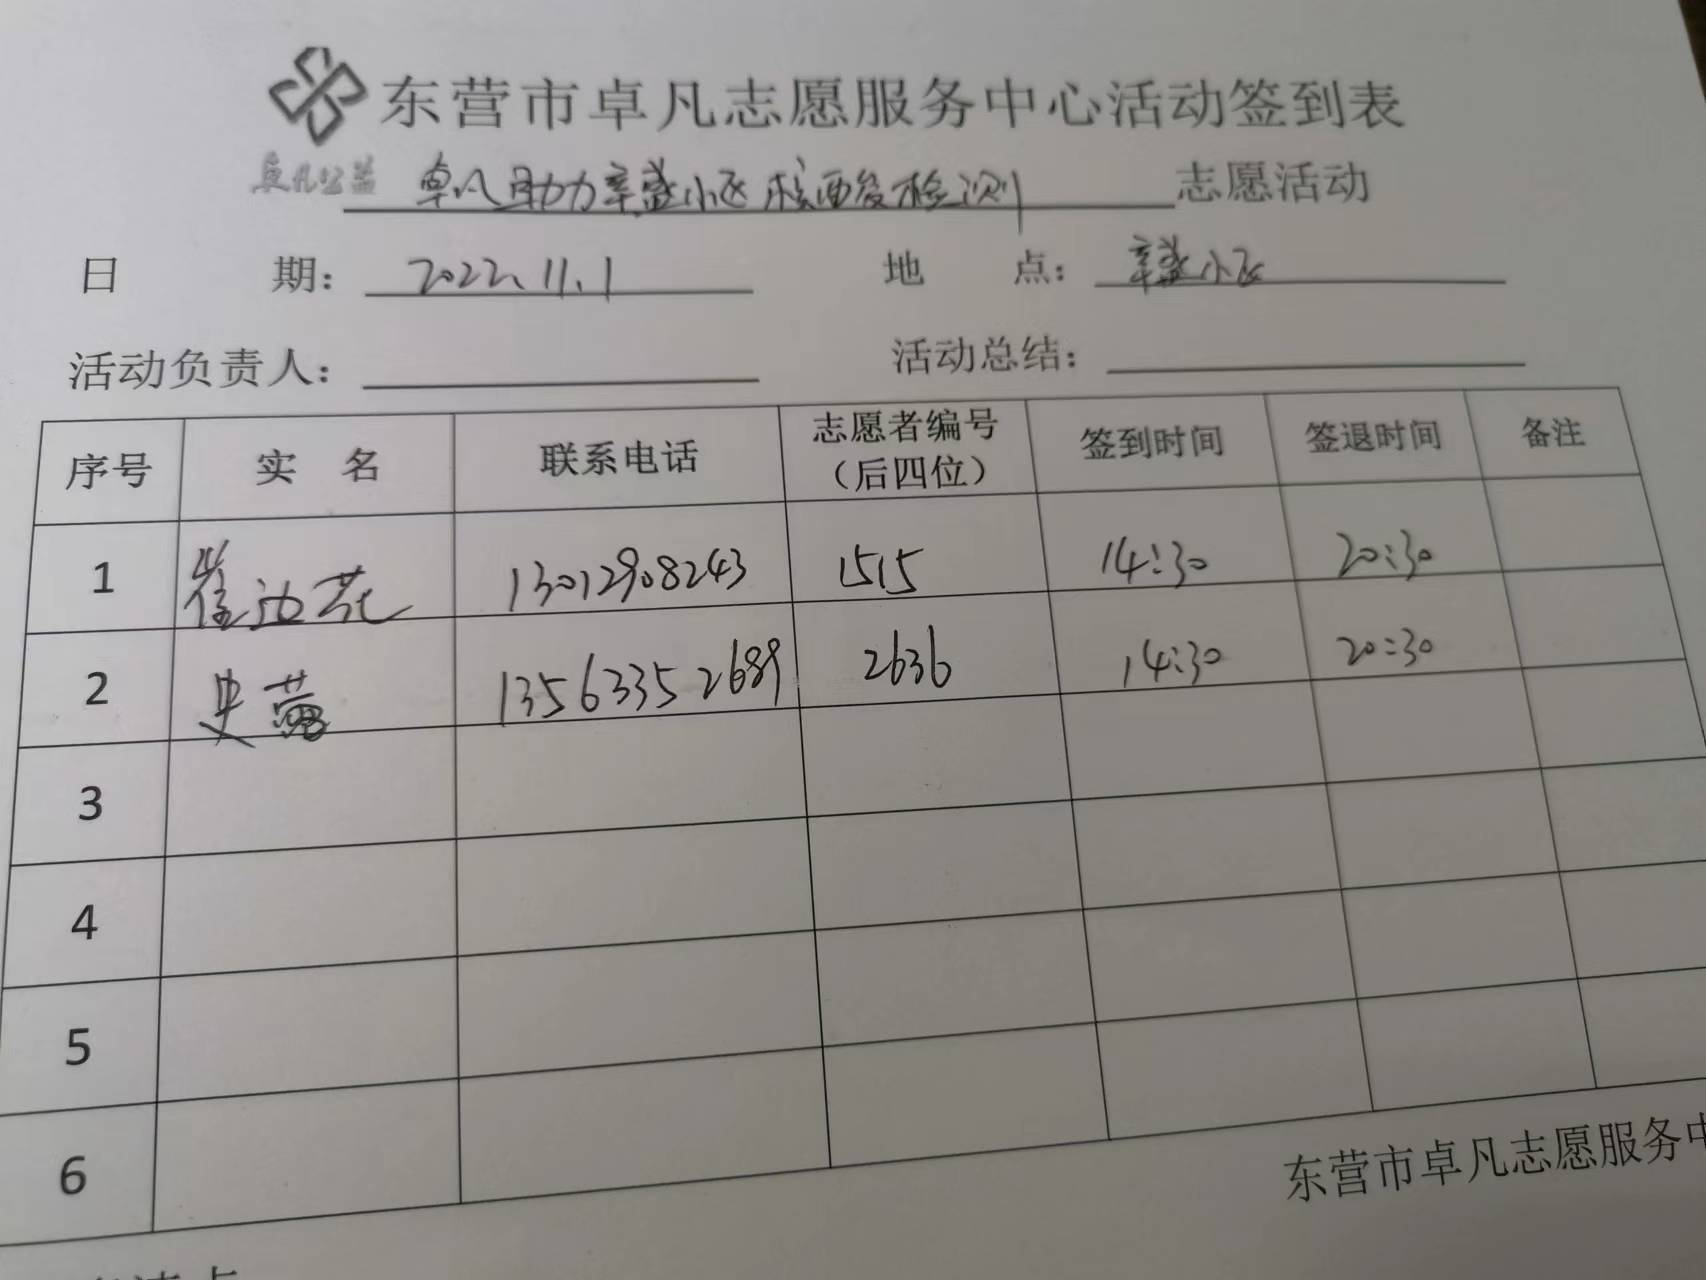 东营市卓凡志愿服务中心活动签到表
卓凡公益 卓凡助力莘盛小区核酸检测 志愿活动
日 期: 2022.11.1 地 点: 莘盛小区
活动负责人: 活动总结:
序号 实 名 联系电话 志愿者编号（后四位） 签到时间 签退时间 备注
1 崔 花 13012908243 1515 14:30 20:30
2 史 13563352689 2636 14:30 20:30
3
4
5
6
东营市卓凡志愿服务中